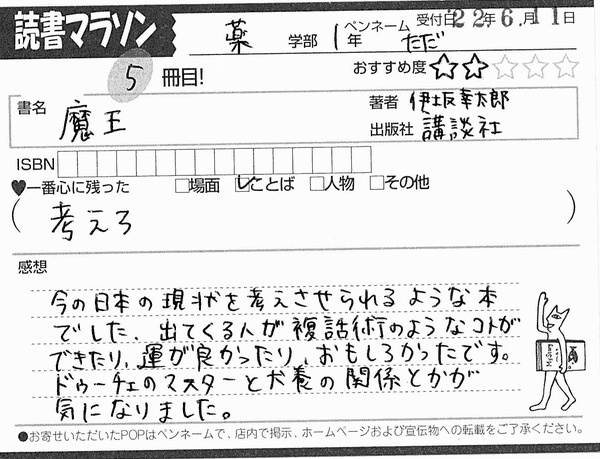 読書マラソン
薬 学部 1年 ペンネーム ただ 受付日22年6.月11日
5 冊目! おすすめ度 ☆☆☆☆☆
書名 魔王 著者 伊坂幸太郎
出版社 講談社
ISBN
♥一番心に残った □場面 ☑ことば □人物 □その他
(考えろ)
感想
今の日本の現状を考えさせられるような本
でした。出てくる人が複話術のようなコトが
できたり、運が良かったり、おもしろかったです。
ドゥーチェのマスターと犬養の関係とかが
気になりました。
●お寄せいただいたPOPはペンネームで、店内で掲示、ホームページおよび宣伝物への転載をご了承ください。